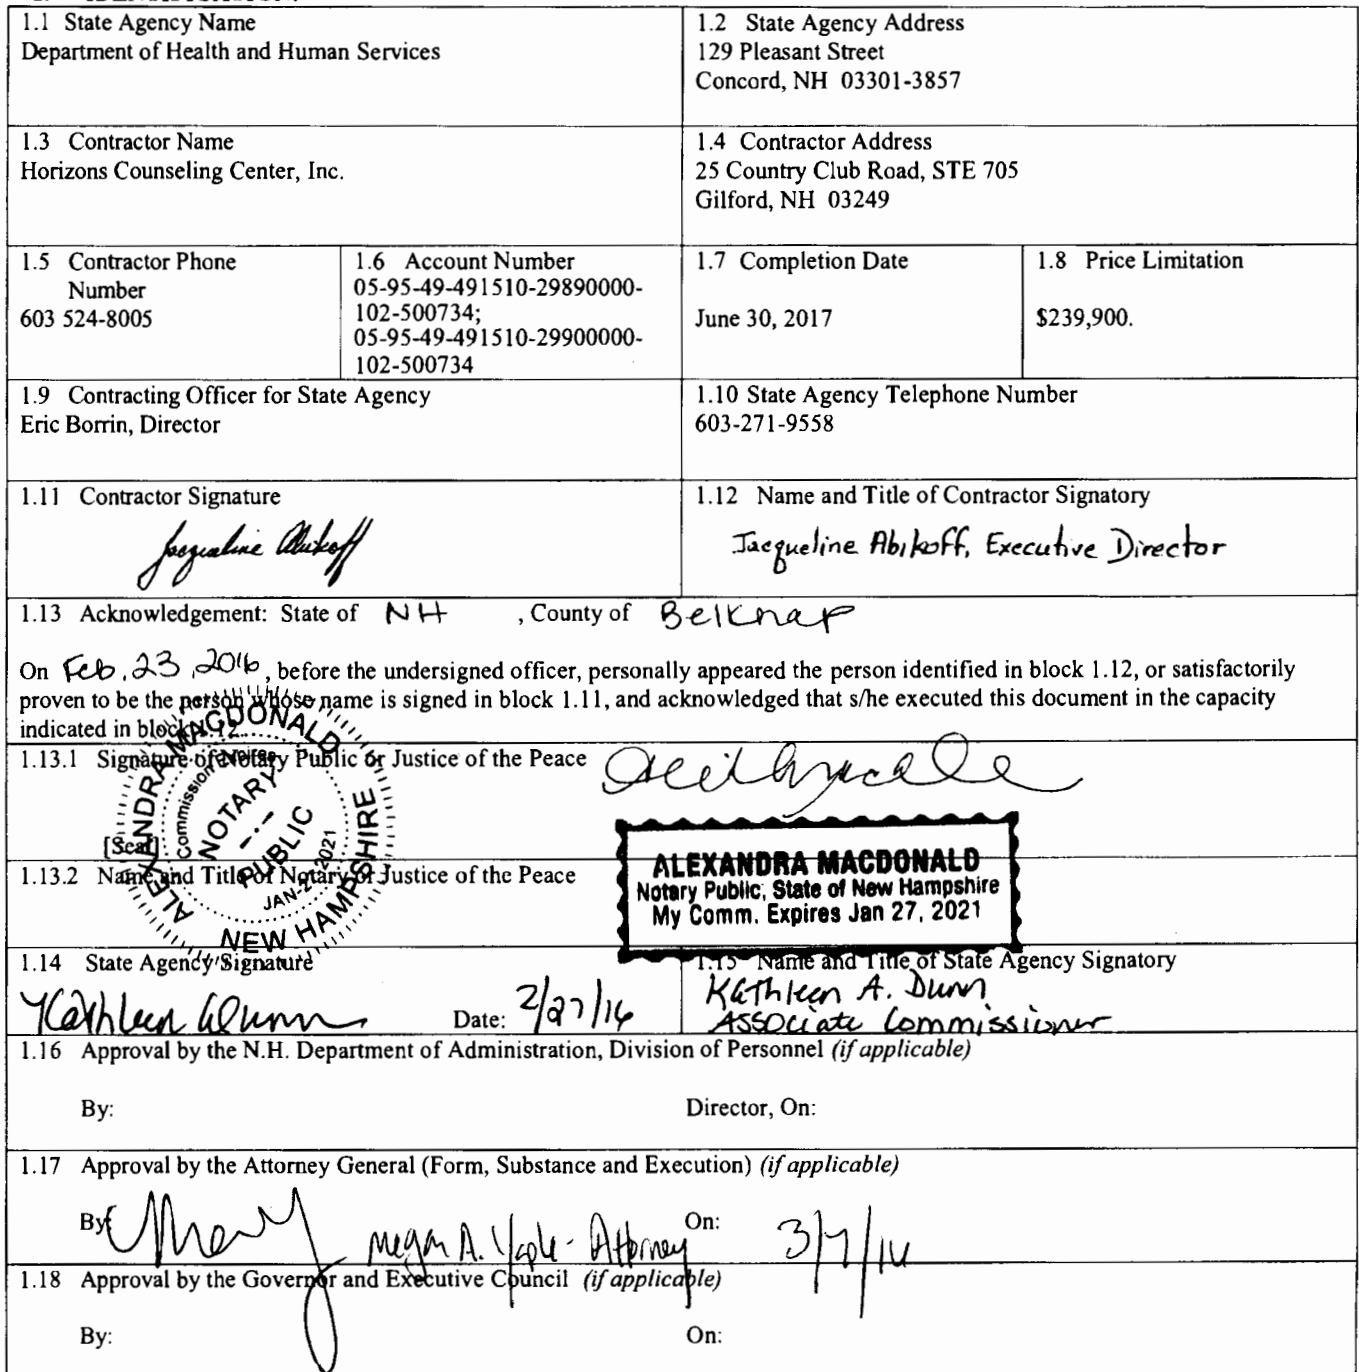 1.1 State Agency Name
Department of Health and Human Services
1.2 State Agency Address
129 Pleasant Street
Concord, NH 03301-3857
1.3 Contractor Name
Horizons Counseling Center, Inc.
1.4 Contractor Address
25 Country Club Road, STE 705
Gilford, NH 03249
1.5 Contractor Phone
Number
603 524-8005
1.6 Account Number
05-95-49-491510-29890000-
102-500734;
05-95-49-491510-29900000-
102-500734
1.7 Completion Date
June 30, 2017
1.8 Price Limitation
$239,900.
1.9 Contracting Officer for State Agency
Eric Borrin, Director
1.10 State Agency Telephone Number
603-271-9558
1.11 Contractor Signature
Jacqueline Abikoff
1.12 Name and Title of Contractor Signatory
Jacqueline Abikoff, Executive Director
1.13 Acknowledgement: State of NH , County of Belknap
On Feb. 23, 2016, before the undersigned officer, personally appeared the person identified in block 1.12, or satisfactorily
proven to be the person whose name is signed in block 1.11, and acknowledged that s/he executed this document in the capacity
indicated in block 1.12.
1.13.1 Signature of Notary Public or Justice of the Peace
[Seal]
ALEXANDRA MACDONALD
Commission Expires
NOTARY
PUBLIC
JAN-27-2021
NEW HAMPSHIRE
ALEXANDRA MACDONALD
Notary Public, State of New Hampshire
My Comm. Expires Jan 27, 2021
1.13.2 Name and Title of Notary or Justice of the Peace
1.14 State Agency Signature
Kathleen A Dunn Date: 2/27/16
1.15 Name and Title of State Agency Signatory
Kathleen A. Dunn
Associate Commissioner
1.16 Approval by the N.H. Department of Administration, Division of Personnel (if applicable)
By: Director, On:
1.17 Approval by the Attorney General (Form, Substance and Execution) (if applicable)
By: Megan A. Yaple - Attorney On: 3/7/16
1.18 Approval by the Governor and Executive Council (if applicable)
By: On: